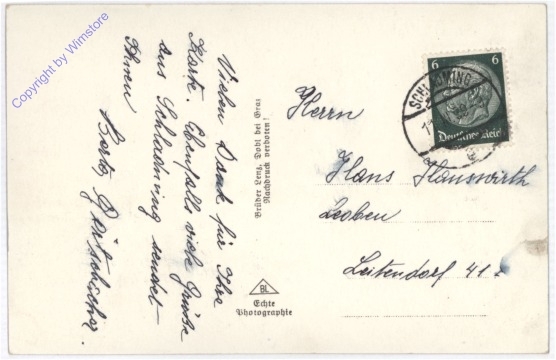 Copyright by Wimstore
Vielen Dank für Ihre
Karte. Ebenfalls viele Grüße
aus Schladming sendet
Ihnen
Brüder Lenz, Dobl bei Graz
Nachdruck verboten!
BL
Echte
Photographie
6 6
Deutsches Reich
SCHLADMING
Herrn
Hans Hauswirth
Leoben
Leitendorf 41